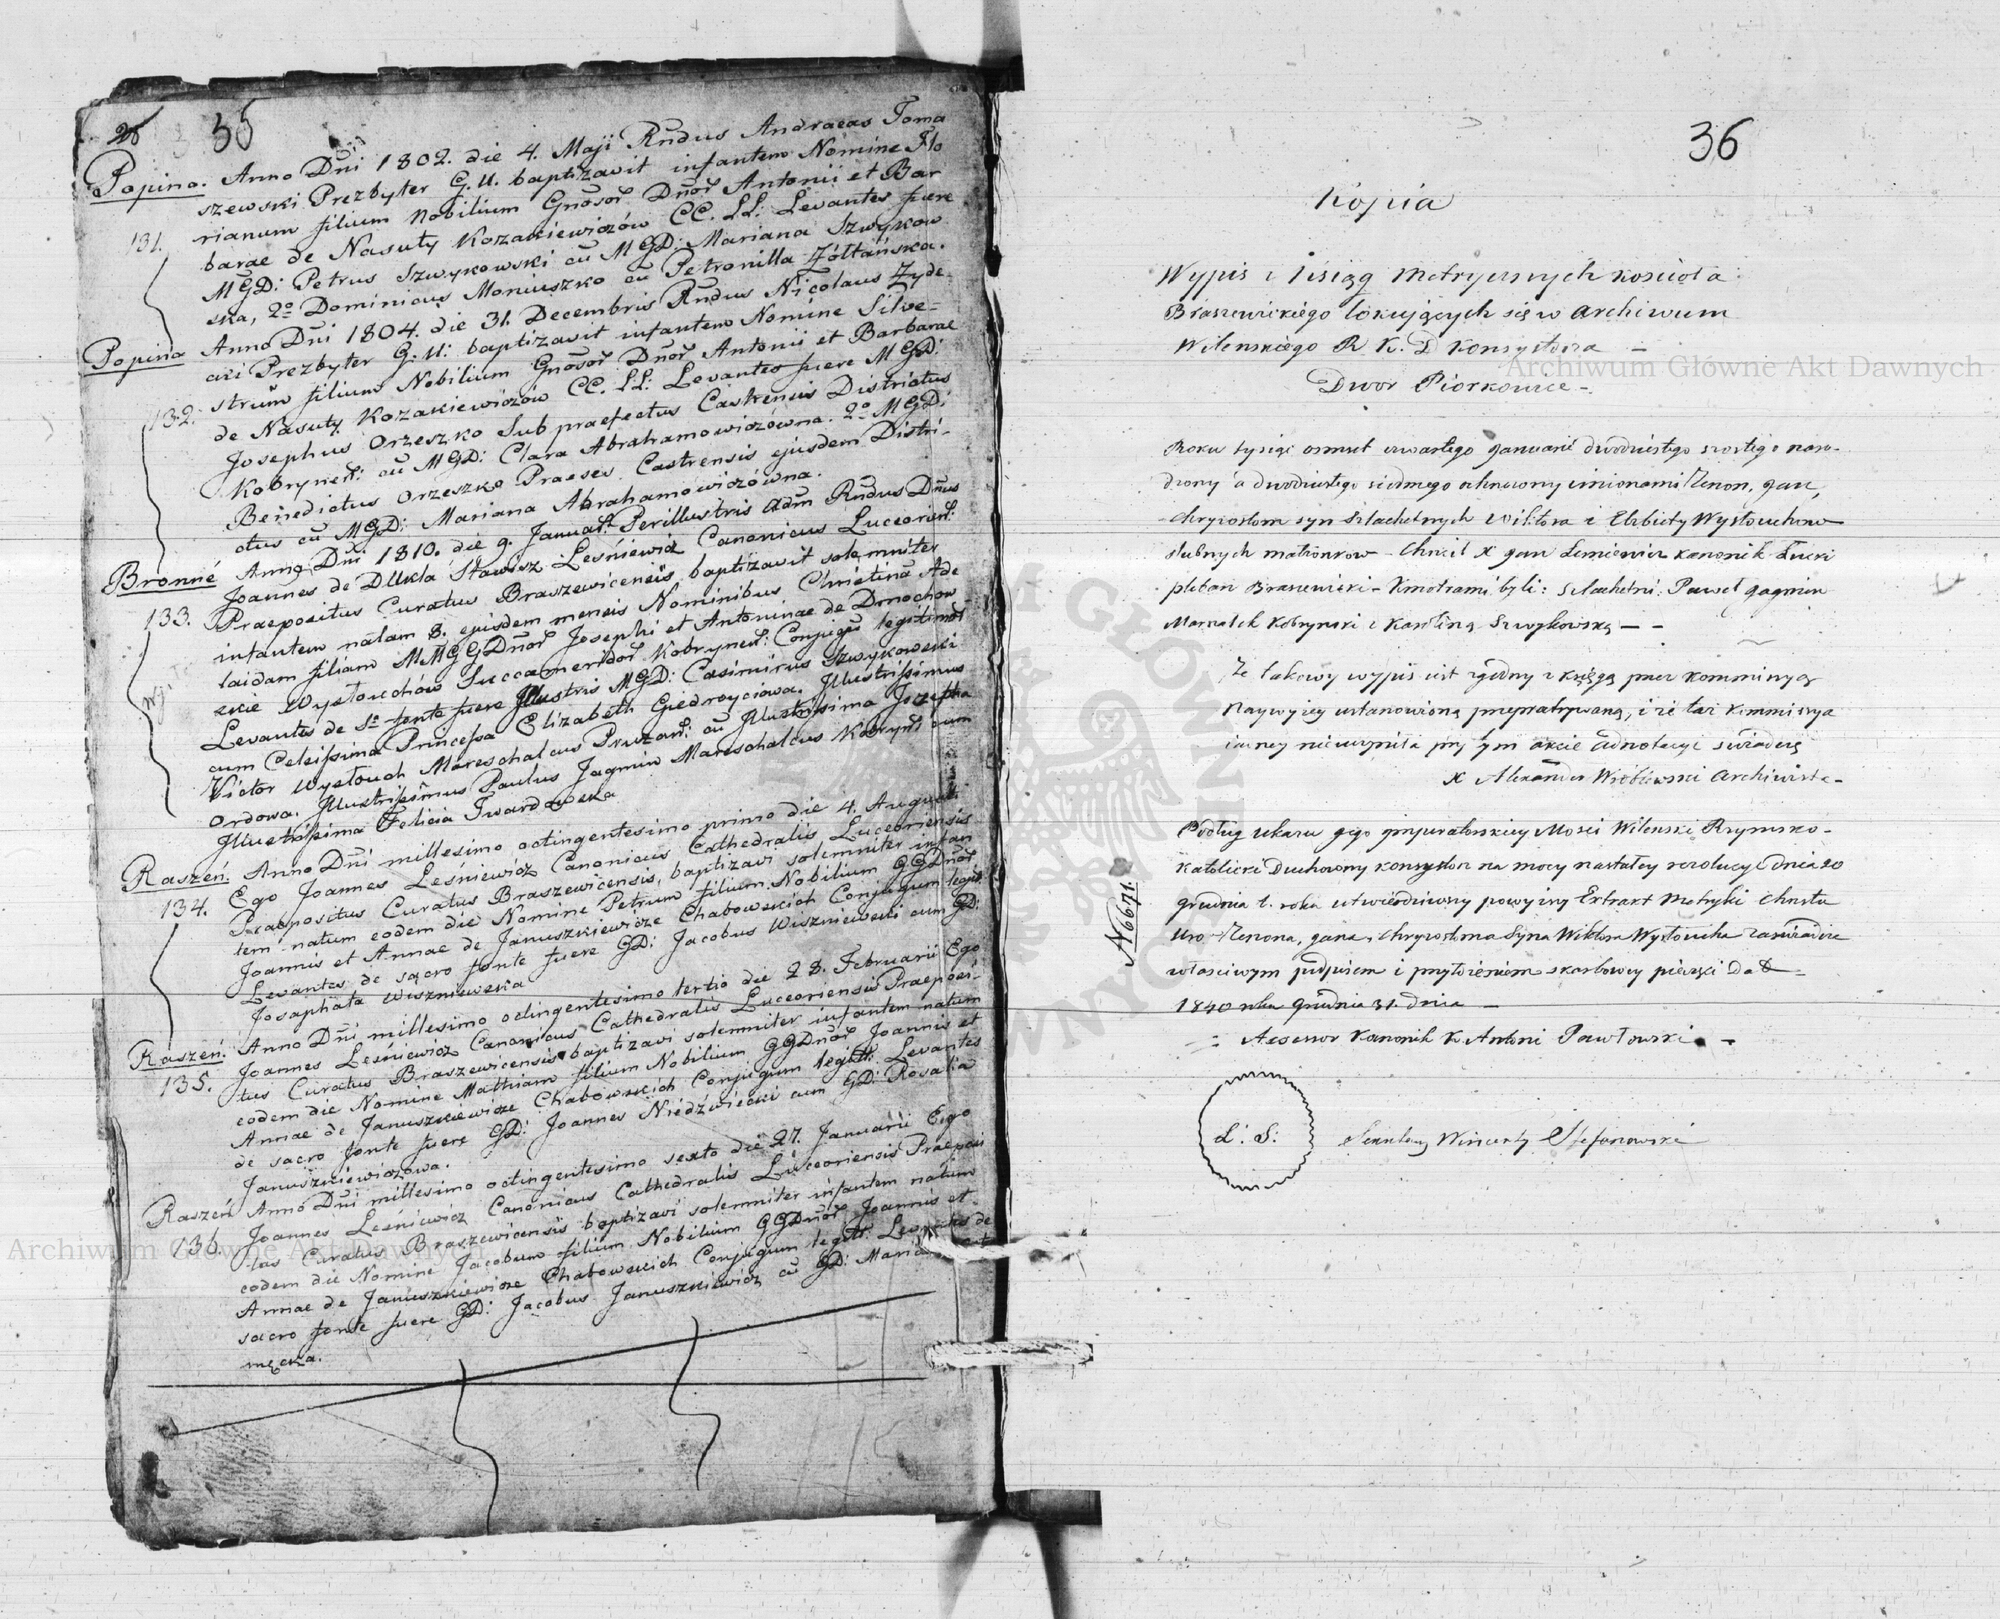 26 35
Popina. Anno Dni 1802. die 4. Maji Rndus Andraeas Toma
szewski Prezbyter G. U. baptizavit infantem Nomine Flo
rianum filium Nobilium Gnosor Dnor Antonii et Bar
131. barae de Nasuty Kozakiewiczów CC. LL: Levantes fuere
MGD: Petrus Szwykowski cu MGD: Mariana Szwykow
ska, 2o Dominicus Moniuszko cu Petronilla Żółtańska.
Popina Anno Dni 1804. die 31. Decembris Rndus Nicolaus Zyde-
cki Prezbyter G. U: baptizavit infantem Nomine Silve-
strum filium Nobilium Gnosor Dnor Antonii et Barbarae
132. de Nasuty Kozakiewiczów CC. LL: Levantes fuere MGD:
Josephus Orzeszko Subpraefectus Castrensis Districtus
Kobrynen: cu MGD: Clara Abrahamowiczówna. 2o MGD:
Benedictus Orzeszko Praeses Castrensis ejusdem Distri-
ctus cu MGD: Mariana Abrahamowiczówna.
Bronne Anno Dni 1810. die 9. Januar: Perillustris Adm Rndus Dnus
Joannes de Dukla Stawisz Leśniewicz Canonicus Luceorien:
133. Praepositus Curatus Braszewicensis, baptizavit solemniter
infantem natam 8. ejusdem mensis Nominibus Christina Ade
laidam filiam MMGGDnor Josephi et Antoninae de Dmochow
skie Wysłouchów Succamerdor Kobrynen: Conjugu legitimor
Levantes de So fonte fuere Illustris MGD: Casimirus Szwykowski
cum Celsissima Princessa Elizabeth Giedroyciowa. Illustrissimus
Victor Wysłouch Mareschalcus Pruzan: cu Illustrissima Josepha
Ordowa. Illustrissimus Paulus Jagmin Mareschalcus Kobryn: cum
Illustrissima Felicia Twardowska
Raszeń. Anno Dni millesimo octingentesimo primo die 4. Augusti
134. Ego Joannes Leśniewicz Canonicus Cathedralis Luceoriensis
Praepositus Curatus Braszewicensis, baptizavi solemniter infan
tem natum eodem die Nomine Petrum filium Nobilium GGDnor
Joannis et Annae de Januszkiewicze Chabowskich Conjugum legit:
Levantes de sacro fonte fuere GD: Jacobus Wiszniewski cum GD:
Josaphata Wiszniewska
Raszeń. Anno Dni millesimo octingentesimo tertio die 28. Februarii Ego
135. Joannes Leśniewicz Canonicus Cathedralis Luceoriensis Praeposi-
tus Curatus Braszewicensis baptizavi solemniter infantem natum
eodem die Nomine Mathiam filium Nobilium GGDnor Joannis et
Annae de Januszkiewicze Chabowskich Conjugum legitt: Levantes
de sacro fonte fuere GD: Joannes Niedźwiecki cum GD: Rosalia
Januszkiewiczowa.
Raszeń Anno Dni millesimo octingentesimo sexto die 27. Januarii Ego
136. Joannes Leśniewicz Canonicus Cathedralis Luceoriensis Praeposi
tus Curatus Braszewicensis baptizavi solemniter infantem natum
eodem die Nomine Jacobum filium Nobilium GGDnor Joannis et
Annae de Januszkiewicze Chabowskich Conjugum legitt: Levantes de
sacro fonte fuere GD: Jacobus Januszkiewicz cu GD: Maria
męcka.
36
Kopia
Wypis z Ksiąg Metrycznych Kościoła
Braszewickiego lokujących się w Archiwum
Wilenskiego R. K. D Konsystorza —
Dwor Piorkowice -
Roku tysiąc osmset czwartego Januarii dwudziestego szostego naro-
dzony a dwudziestego siodmego ochrzcony imionami Zenon, Jan,
Chryzostom syn Szlachetnych Wiktora i Elżbiety Wysłouchow
slubnych małżonkow - Chrzcił X Jan Lesniewicz Kanonik Łucki
pleban Braszewicki - Kmotrami byli: Szlachetni: Paweł Jagmin
Marszałek Kobrynski z Karoliną Szwykowską — -
Że takowy wypis jest zgodny z księgą przez Kommissyą
Naywyżey ustanowioną przepatrywaną, i że taż Kommissya
żadney nieuczyniła przy tym akcie adnotacyi świadczę
X Alexander Wróblewski Archiwista -
Podług ukazu Jego Imperatorskiey Mości Wilenski Rzymsko-
Katolicki Duchowny Konsystorz na mocy nastałey rezolucyi dnia 20
Grudnia t. roku utwierdziwszy powyższy Extrakt Metryki Chrztu
Uro Zenona, Jana, Chryzostoma Syna Wiktora Wysłoucha zaświadcza
właściwym podpisem i przyłożeniem skarbowey pieczęci Dat -
1840 roku Grudnia 31. dnia —
Assessor Kanonik X Antoni Pawłowski -
N 6671.
L: S: Sekretarz Wincenty Stefanowski
Archiwum Główne Akt Dawnych
Archiwum Główne Akt Dawnych